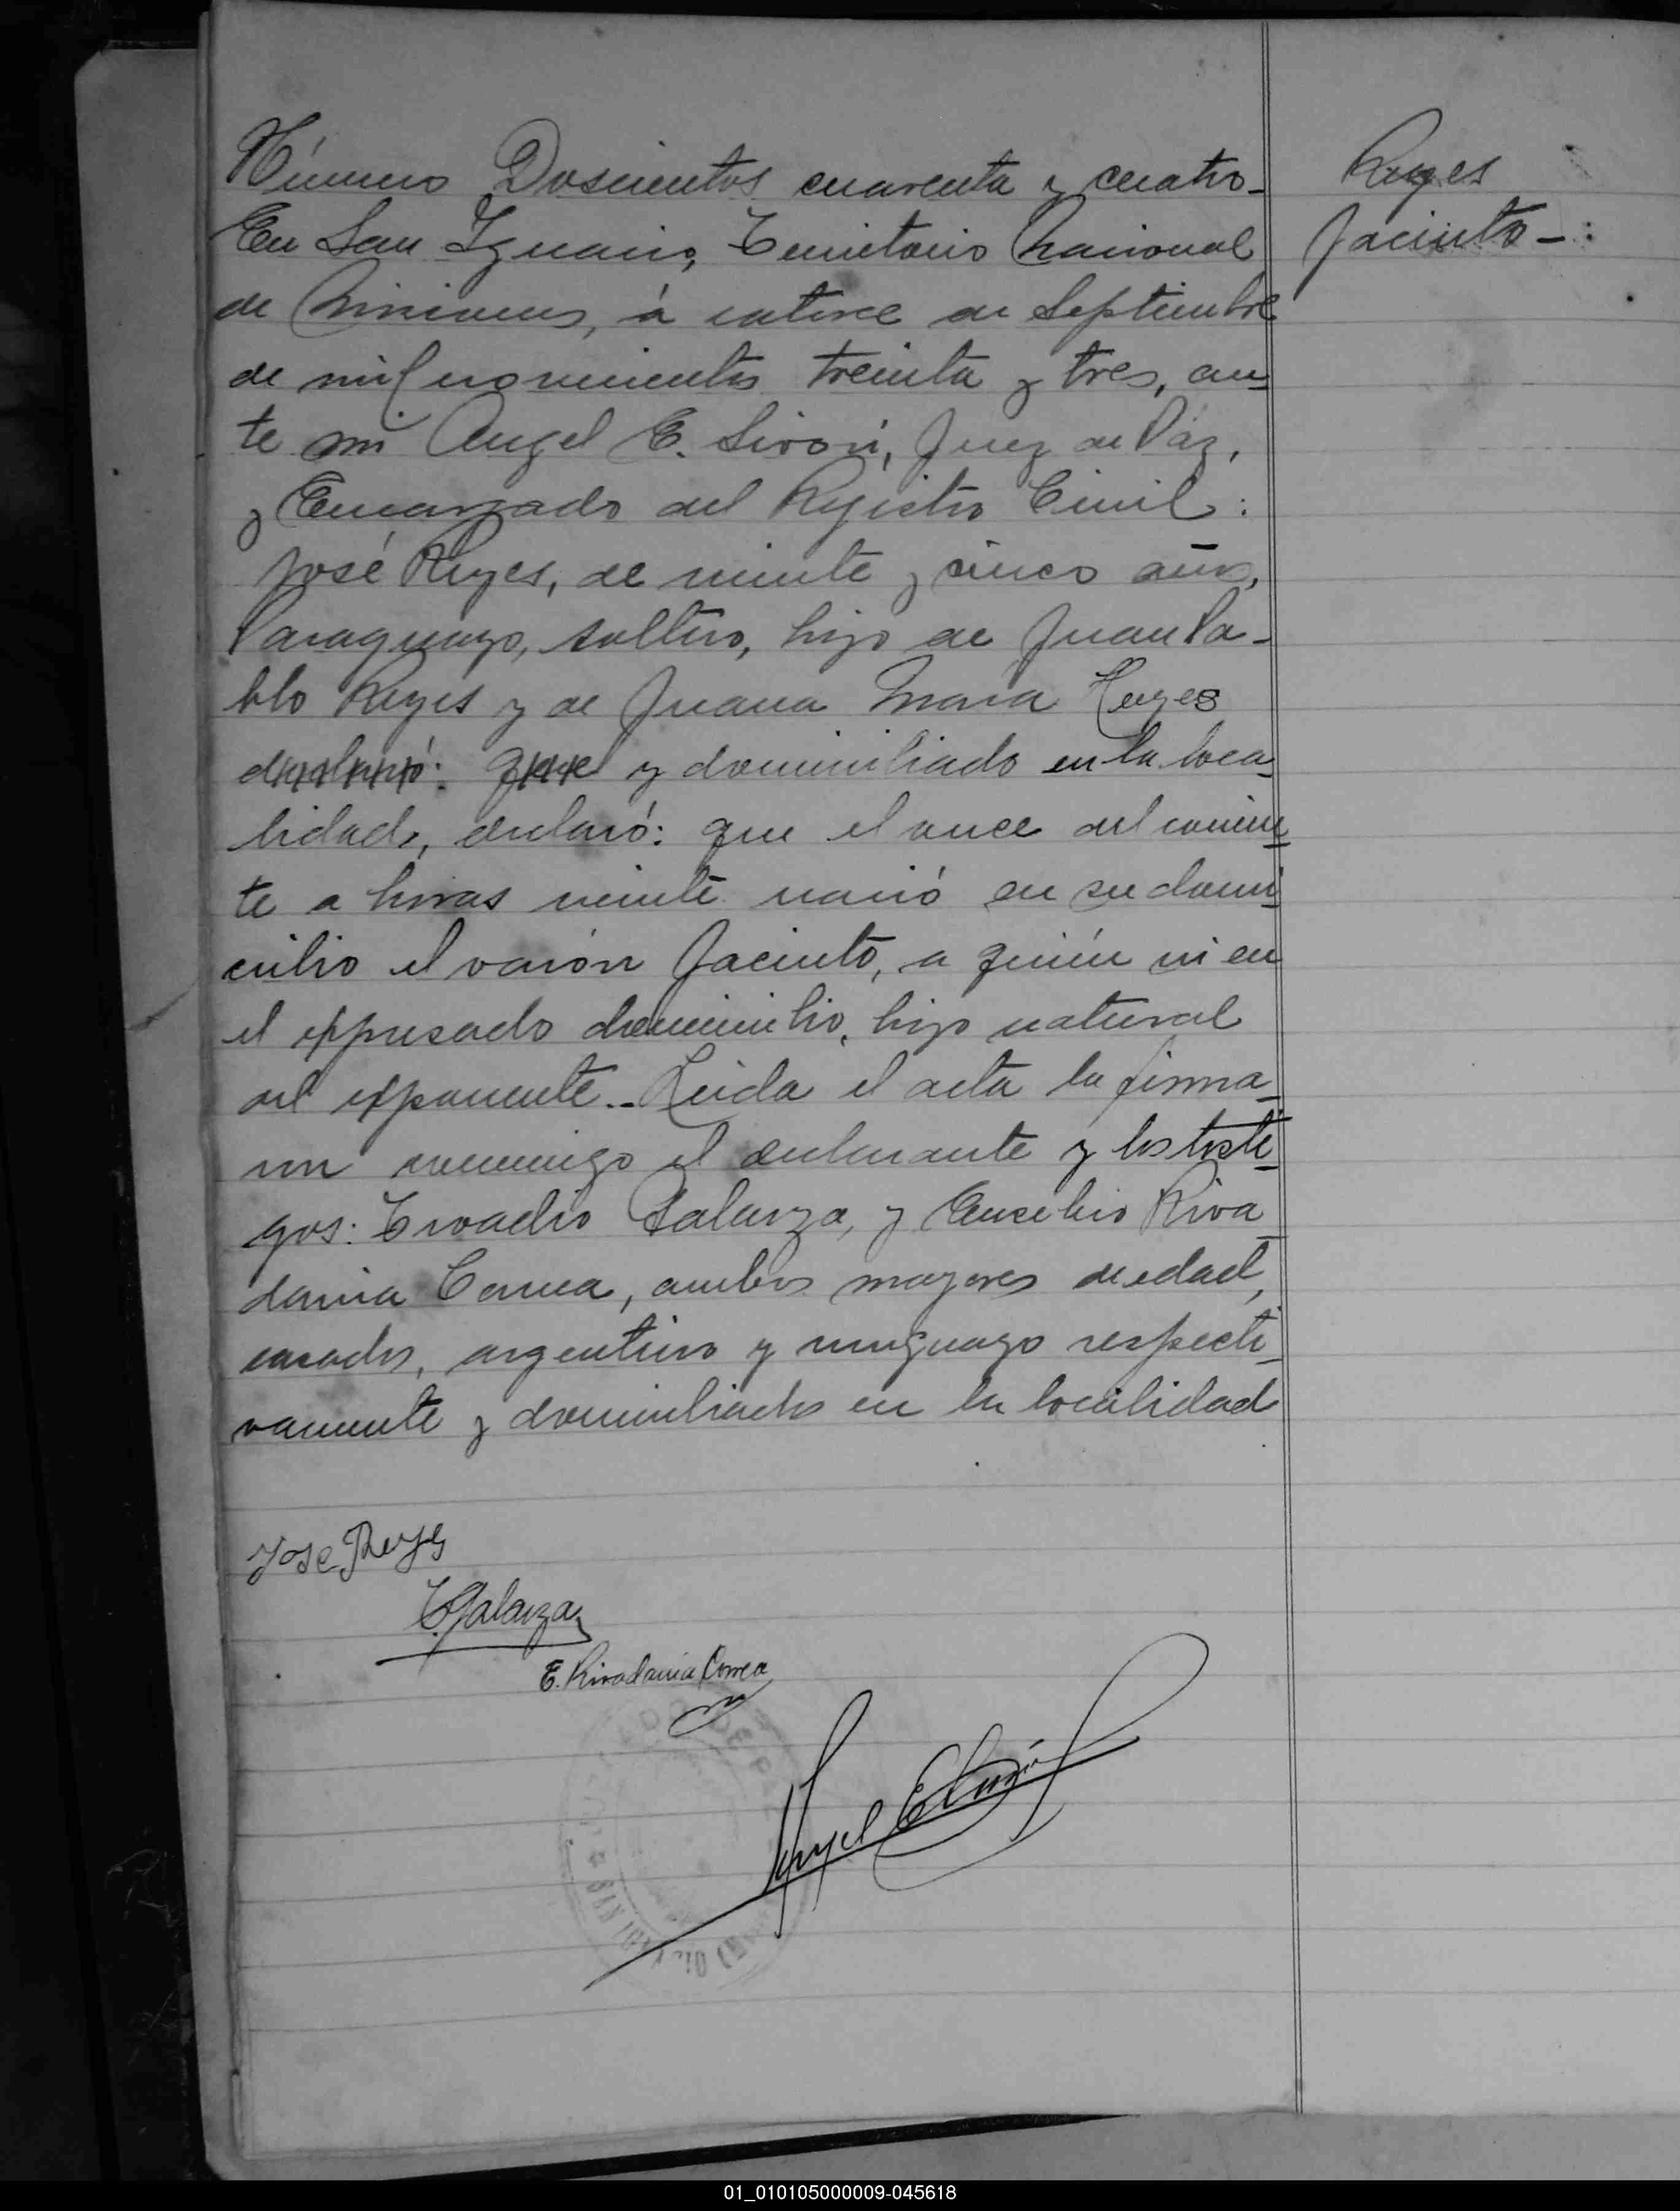 Número Doscientos cuarenta y cuatro-
En San Ignacio, Territorio Nacional
de Misiones, á catorce de Septiembre
de mil novecientos treinta y tres, an-
te mí Angel E. Sirón, Juez de Páz,
y Encargado del Registro Civil:
José Reyes, de veinte y cinco años,
Paraguayo, soltero, hijo de Juan Pa-
blo Reyes y de Juana María Reyes
declaró: que y domiciliado en la loca-
lidad, declaró: que el once del corrien-
te a horas veinte nació en su domi-
cilio el varón Jacinto, a quién ví en
el expresado domicilio, hijo natural
del exponente.- Leida el acta la firma-
ron conmigo el declarante y los testi-
gos: Galarza, y Eusebio Riva
davia Correa, ambos mayores de edad,
casados, argentino y uruguayo respecti-
vamente y domiciliados en la localidad
Reyes
Jacinto-:
Jose Reyes
Galarza
E. Rivadavia Correa
Angel E.
01_010105000009-045618